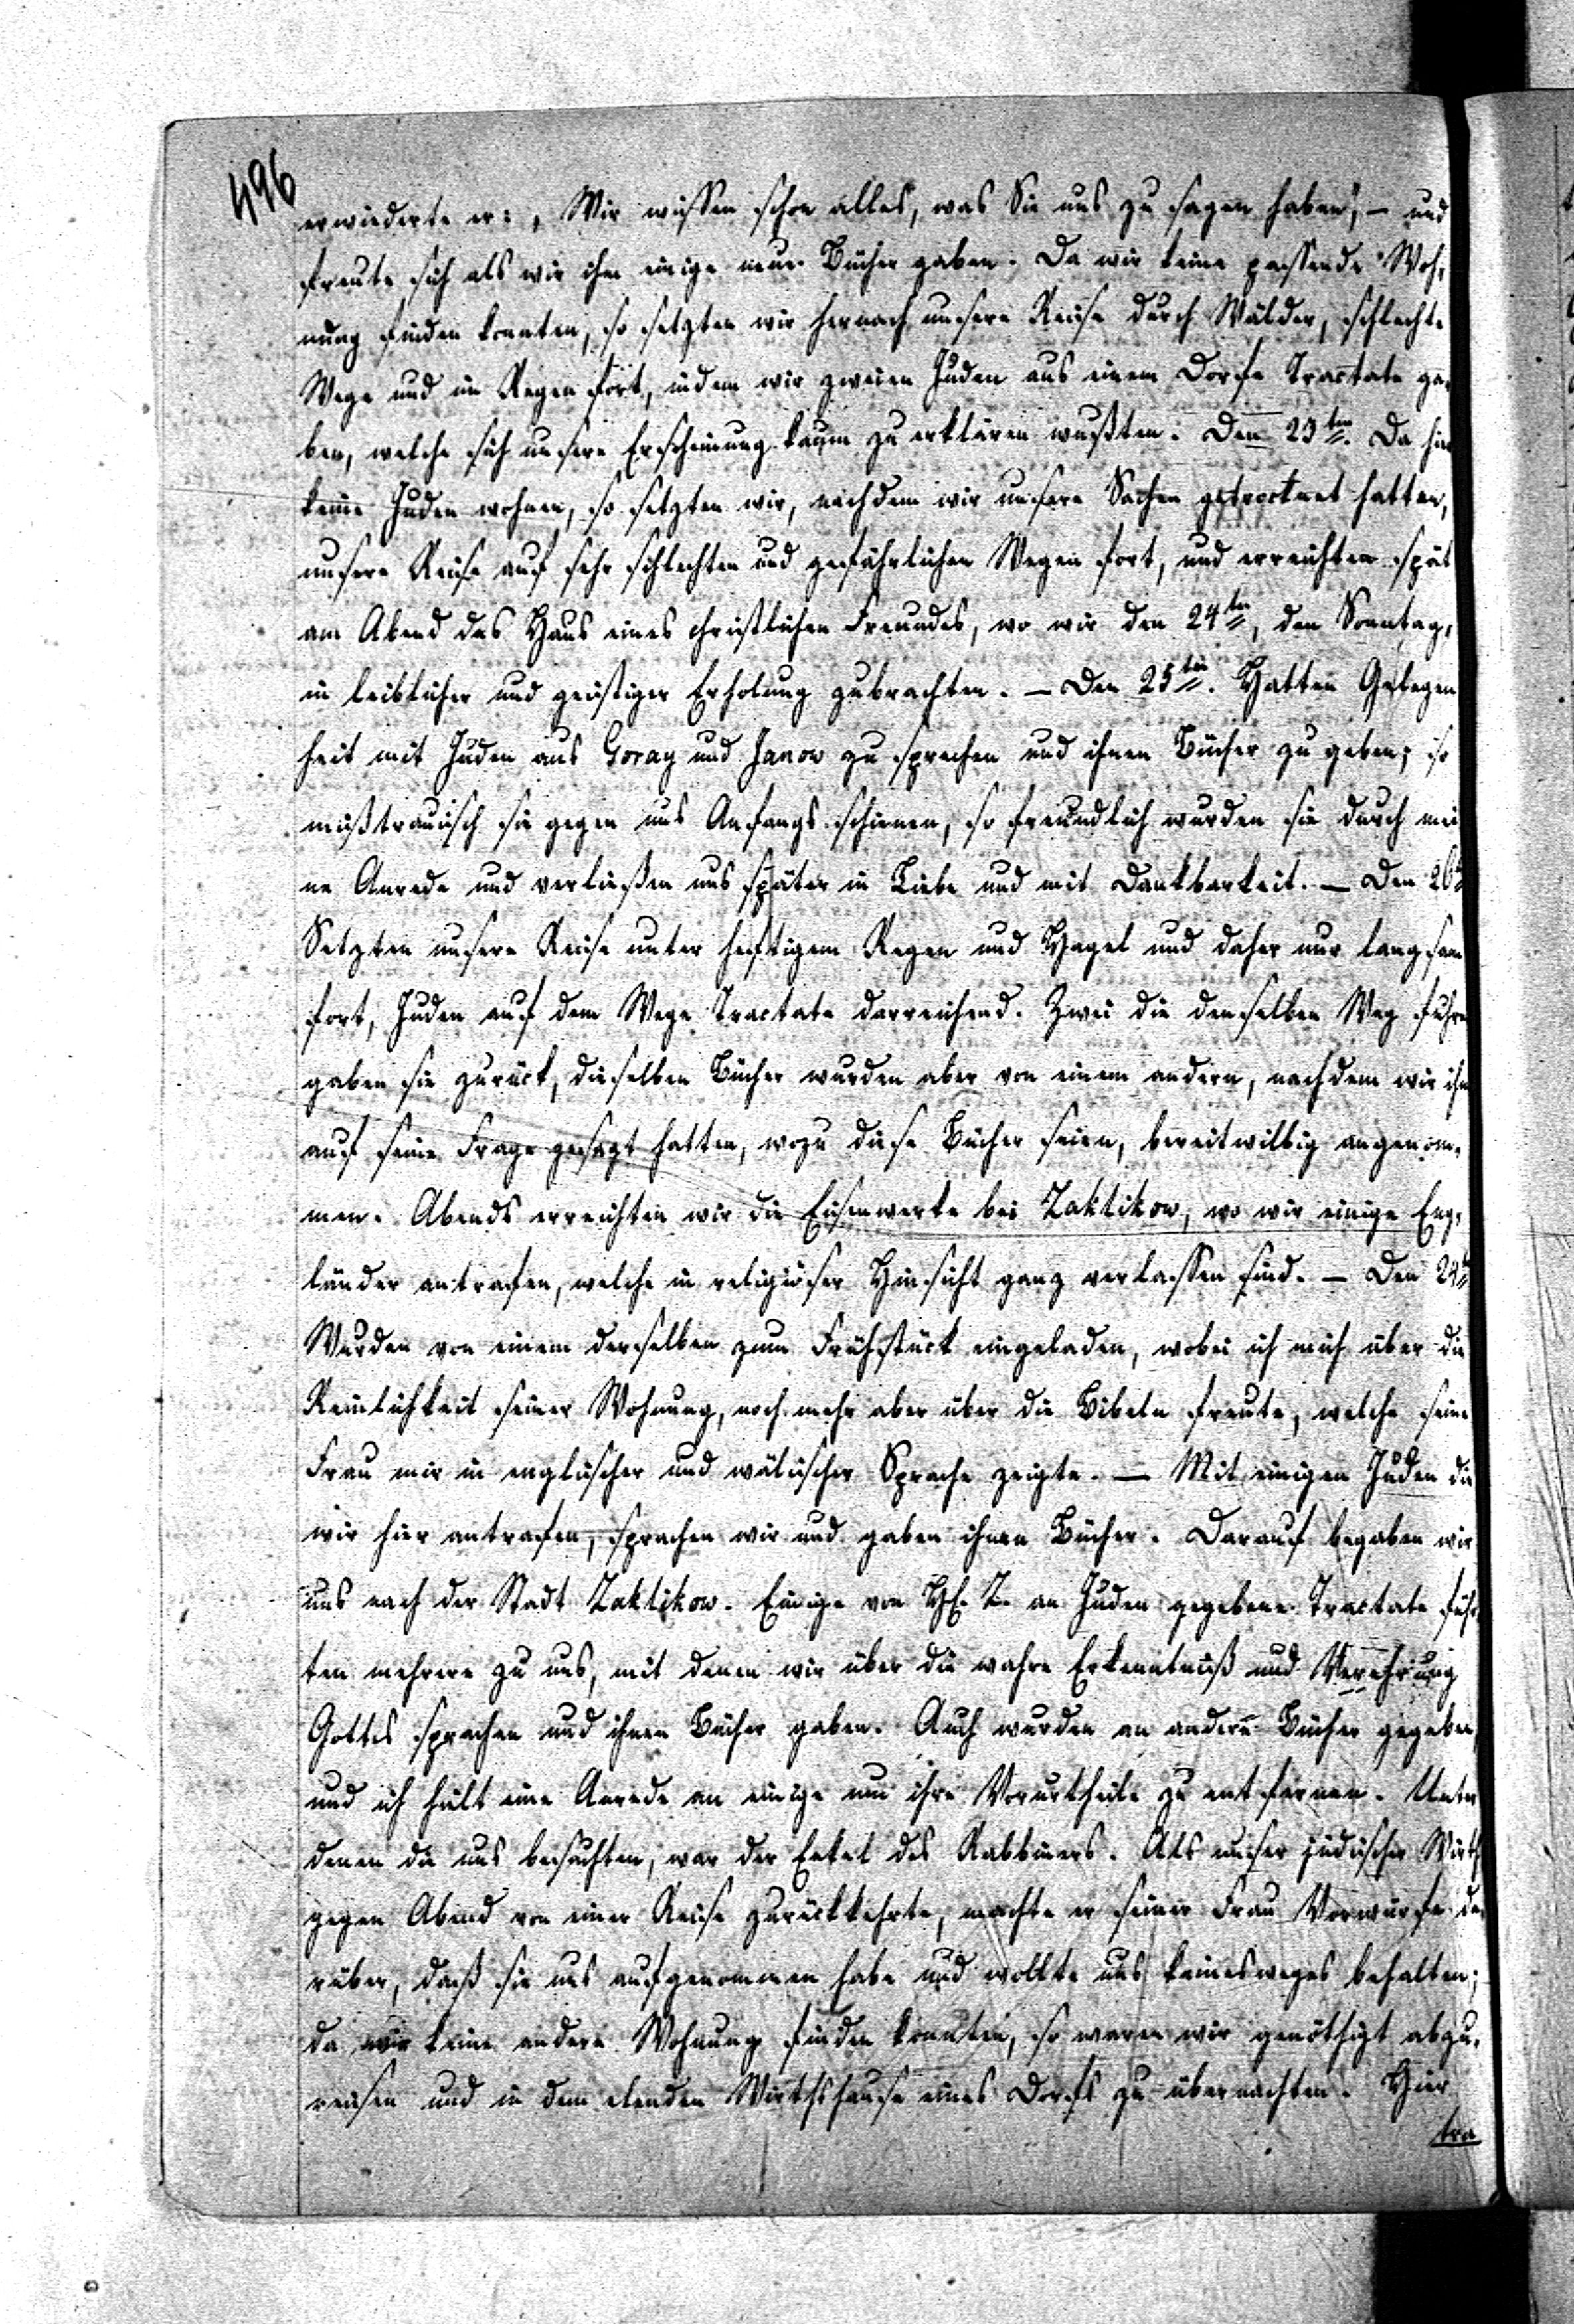 496
erwiederte er: „Wir wissen schon alles, was Sie uns zu sagen haben", — und
freute sich als wir ihm einige neue Bücher gaben. Da wir keine passende Woh-
nung finden konnten, so setzten wir hernach unsere Reise durch Wälder, schlechte
Wege und im Regen fort, indem wir zweien Juden aus einem Dorfe Tractate ga-
ben, welche sich unsere Erscheinung kaum zu erklären wußten. Den 23ten. Da hier
keine Juden wohnen, so setzten wir, nachdem wir unsere Sachen getrocknet hatten,
unsere Reise auf sehr schlechten und gefährlichen Wegen fort, und erreichten spät
am Abend das Haus eines christlichen Freundes, wo wir den 24ten, den Sonntag,
in leiblicher und geistiger Erholung zubrachten. — Den 25ten. Hatten Gelegen
heit mit Juden aus Goray und Janow zu sprechen und ihnen Bücher zu geben; so
mißtrauisch sie gegen uns Anfangs schienen, so freundlich wurden sie durch mei
ne Anrede und verließen uns später in Liebe und mit Dankbarkeit. — Den 26t
Setzten unsere Reise unter heftigem Regen und Hagel und daher nur langsam
fort, Juden auf dem Wege Tractate darreichend. Zwei die denselben Weg fuhren
gaben sie zurück, dieselben Bücher wurden aber von einem andern, nachdem wir ihm
auf seine Frage gesagt hatten, wozu diese Bücher seien, bereitwillig angenom-
men. Abends erreichten wir die Eisenwerke bei Zaklikow, wo wir einige Eng-
länder antrafen, welche in religiöser Hinsicht ganz verlassen sind. — Den 27t
Wurden von einem derselben zum Frühstück eingeladen, wobei ich mich über die
Reinlichkeit seiner Wohnung, noch mehr aber über die Bibeln freute, welche seine
Frau mir in englischer und wälischer Sprache zeigte. — Mit einigen Juden die
wir hier antrafen, sprachen wir und gaben ihnen Bücher. Darauf begaben wir
uns nach der Stadt Zaklikow. Einige von H. Z. an Juden gegebene Tractate führ
ten mehrere zu uns, mit denen wir über die wahre Erkenntniß und Verehrung
Gottes sprachen und ihnen Bücher gaben. Auch wurden an andere Bücher gegeben,
und ich hielt eine Anrede an einige um ihre Vorurtheile zu entfernen. Unter
denen die uns besuchten, war der Enkel des Rabbiners. Als unser jüdischer Wirth
gegen Abend von einer Reise zurückkehrte, machte er seiner Frau Vorwürfe da
rüber, daß sie uns aufgenommen habe und wollte uns keinesweges behalten;
da wir keine andere Wohnung finden konnten, so waren wir genöthigt abzu-
reisen und in dem elenden Wirthshause eines Dorfs zu übernachten. Hier
tra